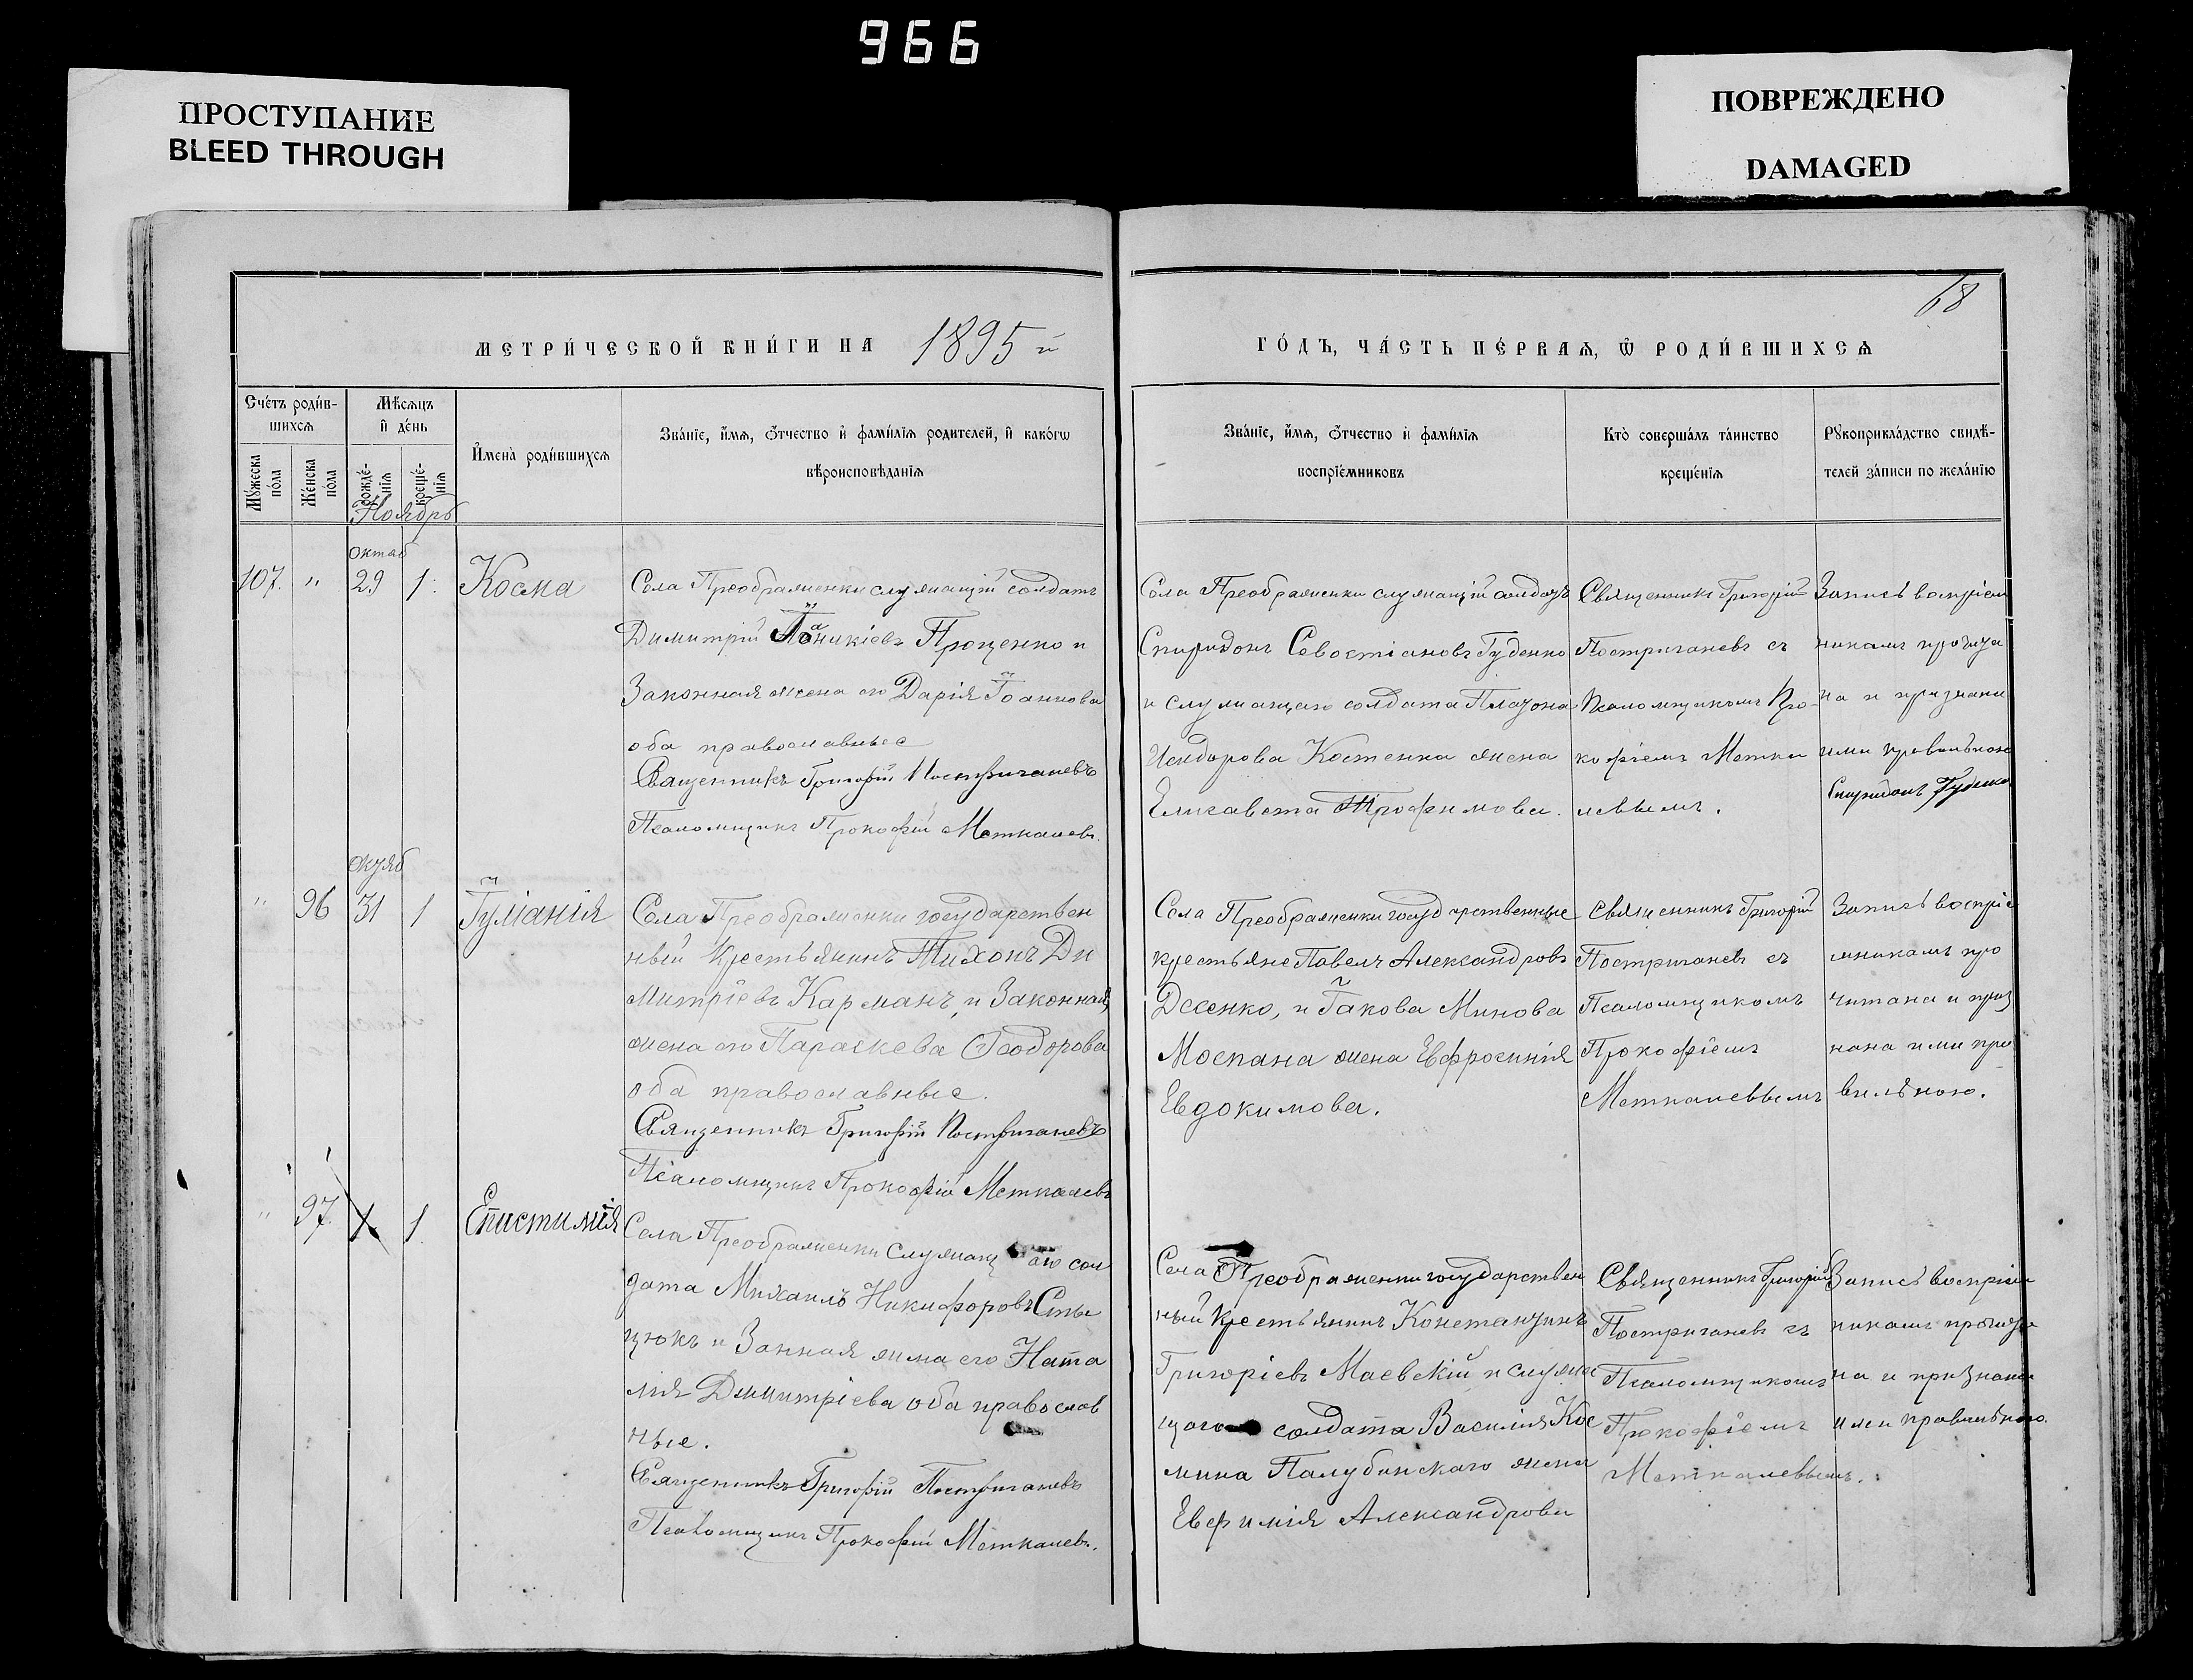 966
ПРОСТУПАНИЕ
BLEED THROUGH
ПОВРЕЖДЕНО
DAMAGED
68
МЕТРИ́ЧЕСКОЙ КНИ́ГИ НА 1895 й
ГО́ДЪ, ЧА́СТЬ ПЕ́РВАѦ, Ѿ РОДИ́ВШИХСѦ
Сче́тъ роди́в-
шихсѧ
Мѣ́сѧцъ
и҆ де́нь
Мꙋ́жеска
по́ла
Же́нска
по́ла
рожде́-
нїѧ
креще́-
нїѧ
И҆мена̀ роди́вшихсѧ
Зва́нїе, и҆́мѧ, ѻ҆́тчество и҆ фами́лїѧ родителей, и҆ како́гѡ
вѣроисповѣ́данїѧ
Зва́нїе, и҆́мѧ, ѻ҆́тчество и҆ фами́лїѧ
воспрїе́мниковъ
Кто̀ соверша́лъ та́инство
креще́нїѧ
Рꙋкоприкла́дство свидѣ́-
телей за́писи по жела́нїю
Ноябрь
октяб
107. " 29 1. Косма
Села Преображенки служащій солдатъ
Димитрій Іоаникіевъ Проценко и
Законная жена его Дарія Іоаннова
оба православные
Священникъ Григорій Постригачевъ
Псаломщикъ Прокофій Меткалевъ.
Села Преображенки служащій солдатъ
Спиридонъ Севостіановъ Губенко
и служащаго солдата Платона
Исидорова Костенка жена
Елисавета Трофимова.
Священникъ Григорій
Постригачевъ съ
Псаломщикомъ Про-
кофіемъ Метка
левымъ.
Запись воспріем
никамъ прочита
на и признана
ими правильною
Спиридонъ Губенко
октяб
" 96 31 1 Іуліанія
Села Преображенки государствен
ный Крестьянинъ Тихонъ Ди
митріевъ Карманъ, и Законная
жена его Параскева Ѳеодорова
оба православные.
Священникъ Григорій Постригачевъ
Псаломщикъ Прокофій Меткалевъ
Села Преображенки государственные
крестьяне Павелъ Александровъ
Десенко, и Іакова Минова
Моспана жена Евфросинія
Евдокимова.
Священникъ Григорій
Постригачевъ съ
Псаломщикомъ
Прокофіемъ
Меткалевымъ
Запись воспріе
мникамъ про
читана и приз
нана ими пра
вильною.
" 97. 1 1. Епистимія
Села Преображенки Служащаго сол
дата Михаилъ Никифоровъ Сты
цюкъ и Занная жена его Ната
лія Димитріева оба православ
ные.
Священникъ Григорій Постригачевъ
Псаломщикъ Прокофій Меткалевъ.
Села Преображенки государствен
ный Крестьянинъ Константинъ
Григоріевъ Маевскій и служа
щаго солдата Василія Кос
мина Палубинскаго жена
Евфимія Александрова
Священникъ Григорій
Постригачевъ съ
Псаломщикомъ
Прокофіемъ
Меткалевымъ.
Запись воспріем
никамъ прочита
на и признана
ими правильною.